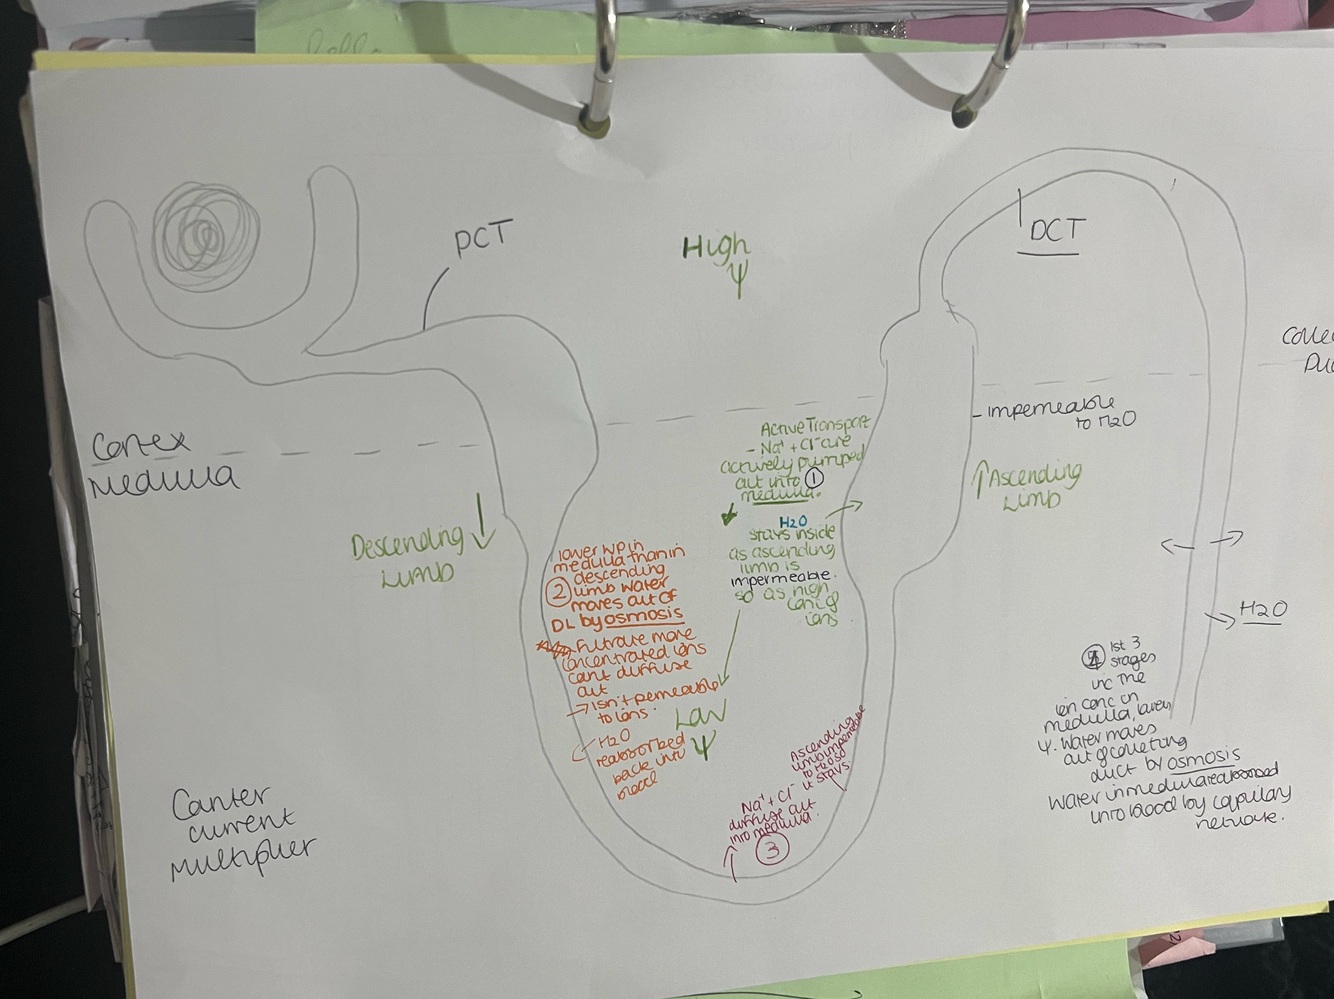 PCT
High
ψ
DCT
Cortex
Medulla
Descending
Limb
Active Transport
- Na⁺ + Cl⁻ are
actively pumped
out into ①
medulla.
H2O
stays inside
as ascending
limb is
impermeable.
so as high
conc of
ions
- impermeable
to H2O
↑ Ascending
Limb
lower WP in
medulla than in
② descending
limb water
moves out of
DL by osmosis
Filtrate more
concentrated ions
cant diffuse
out
→ Isn't permeable
to ions.
H2O
reabsorbed
back into
blood
Low
ψ
Ascending
limb impermeable
to H2O so
it stays
Na⁺ + Cl⁻
diffuse out
into medulla.
③
H2O
④ 1st 3
stages
inc the
ion conc in
medulla, lowers
ψ. Water moves
out of collecting
duct by osmosis
Water in medulla reabsorbed
into blood by capillary
network.
Counter
current
Multiplier